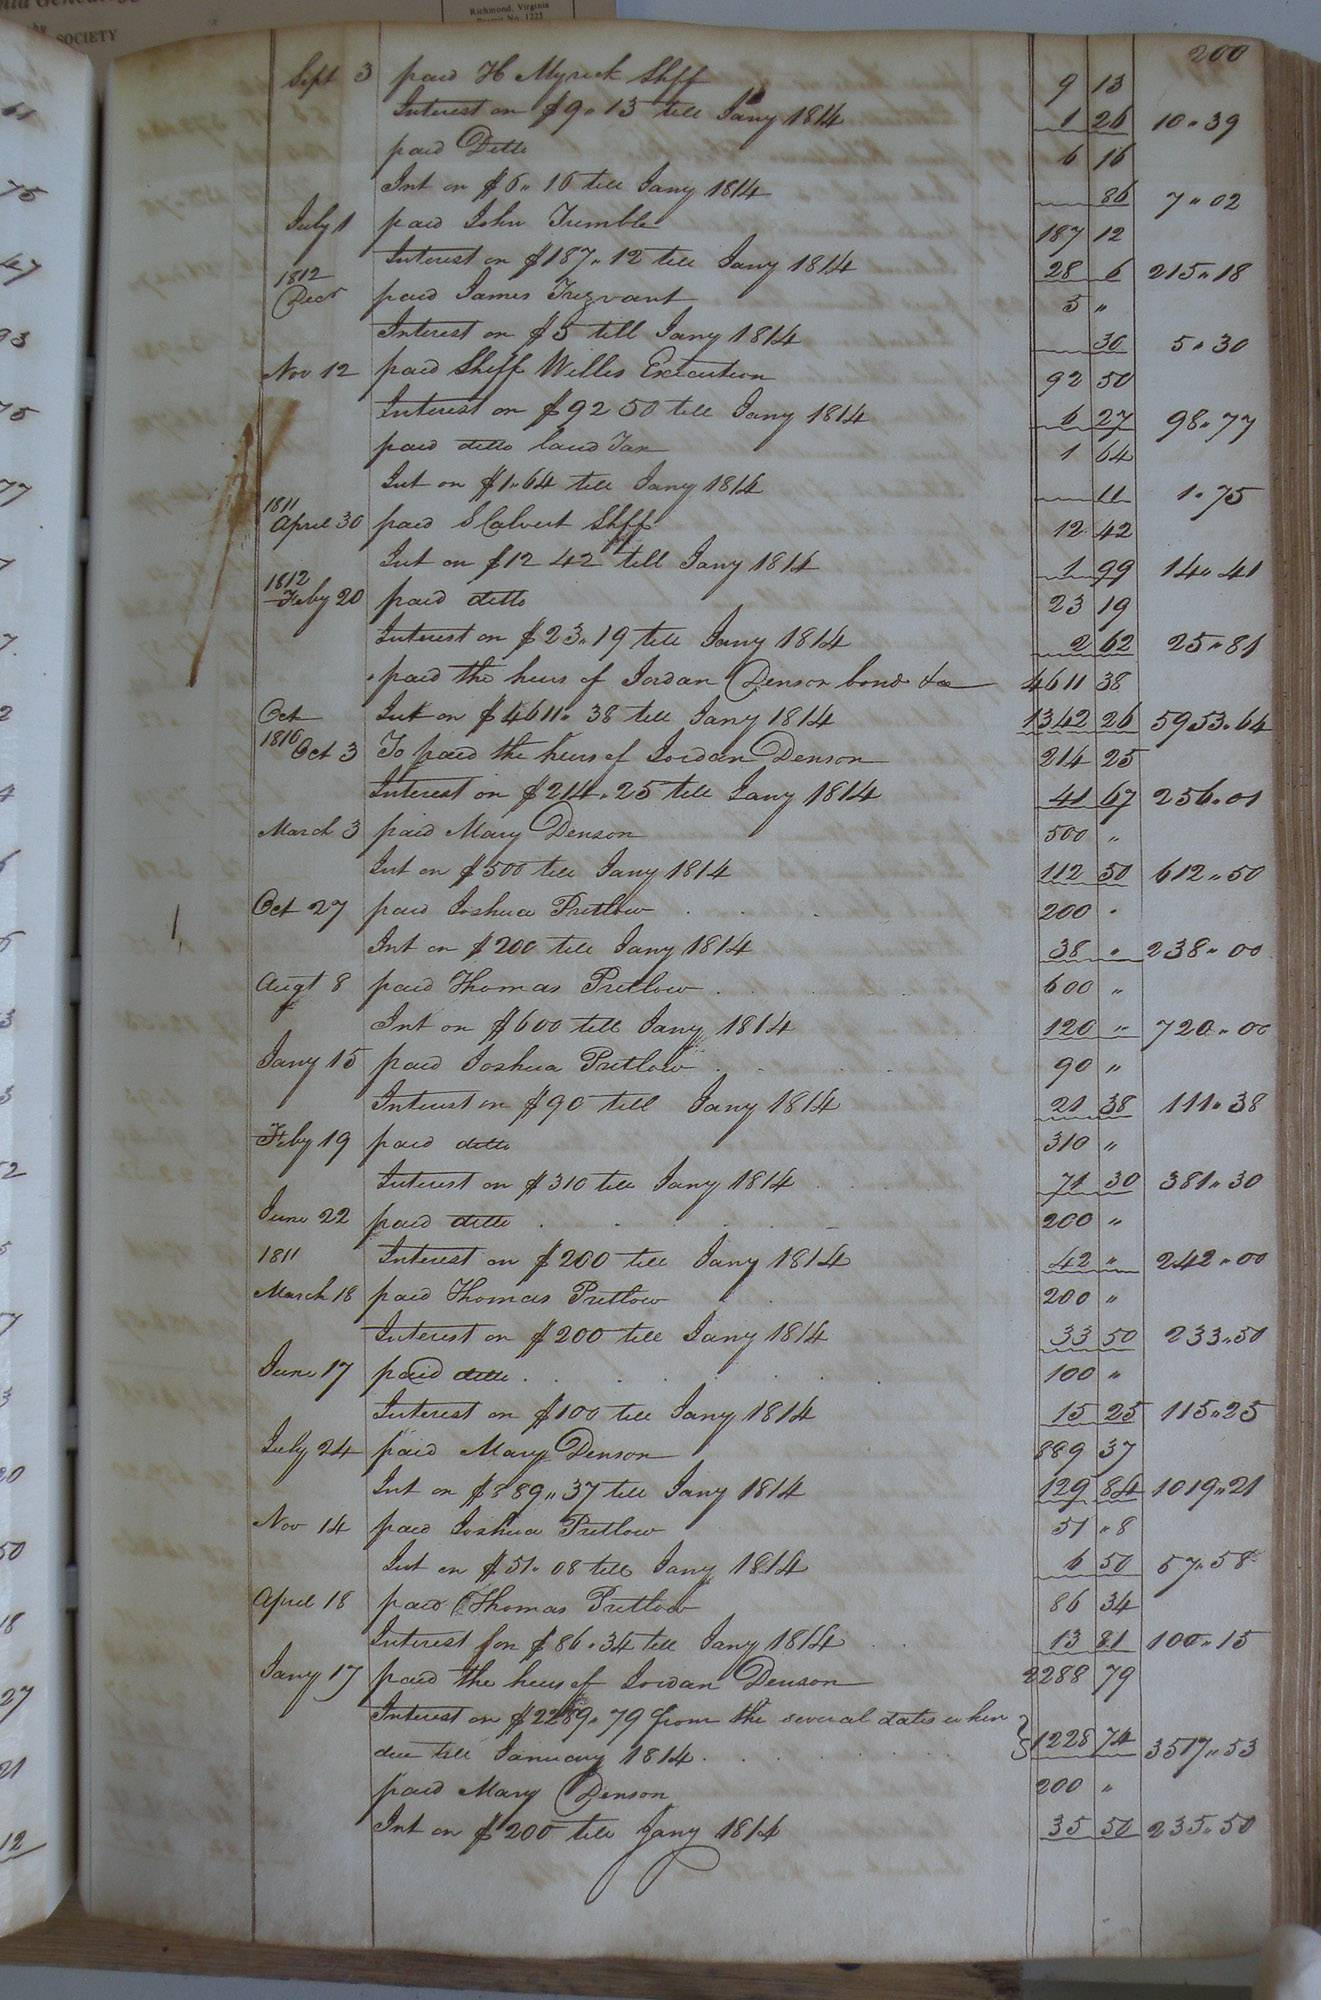 Richmond, Virginia
Permit No. 1225
SOCIETY
200
Sept 3 paid H Myrick Shff 9 13
Interest on $9"13 till Jany 1814 1 26 10"39
paid Ditto 6 16
Int on $6"16 till Jany 1814 86 7"02
July 1 paid John Trumble 187 12
Interest on $187"12 till Jany 1814 28 6 215"18
1812
Decr paid James Trezvant 5 "
Interest on $5 till Jany 1814 30 5"30
Nov 12 paid Shff Wills Execution 92 50
Interest on $92 50 till Jany 1814 6 27 98"77
paid ditto land Tax 1 64
Int on $1"64 till Jany 1814 11 1"75
1811
April 30 paid S Calvert Shff 12 42
Int on $12 42 till Jany 1814 1 99 14"41
1812
Feby 20 paid ditto 23 19
Interest on $23"19 till Jany 1814 2 62 25"81
paid the heirs of Jordan Denson bond &c 4611 38
Oct Int on $4611"38 till Jany 1814 1342 26 5953"64
1810 Oct 3 To paid the heirs of Jordan Denson 214 25
Interest on $214"25 till Jany 1814 41 67 256"01
March 3 paid Mary Denson 500 "
Int on $500 till Jany 1814 112 50 612"50
Oct 27 paid Joshua Pretlow 200 "
Int on $200 till Jany 1814 38 " 238"00
Augt 8 paid Thomas Pretlow 600 "
Int on $600 till Jany 1814 120 " 720"00
Jany 15 paid Joshua Pretlow 90 "
Interest on $90 till Jany 1814 21 38 111"38
Feby 19 paid ditto 310 "
Interest on $310 till Jany 1814 71 30 381"30
June 22 paid ditto 200 "
1811 Interest on $200 till Jany 1814 42 " 242"00
March 18 paid Thomas Pretlow 200 "
Interest on $200 till Jany 1814 33 50 233"50
June 17 paid ditto 100 "
Interest on $100 till Jany 1814 15 25 115"25
July 24 paid Mary Denson 889 37
Int on $889"37 till Jany 1814 129 84 1019"21
Nov 14 paid Joshua Pretlow 51 "8
Int on $51"08 till Jany 1814 6 50 57"58
April 18 paid Thomas Pretlow 86 34
Interest on $86"34 till Jany 1814 13 81 100"15
Jany 17 paid the heirs of Jordan Denson 2288 79
Interest on $2289"79 from the several dates when
due till January 1814 1228 74 3517"53
paid Mary Denson 200 "
Int on $200 till Jany 1814 35 50 235"50